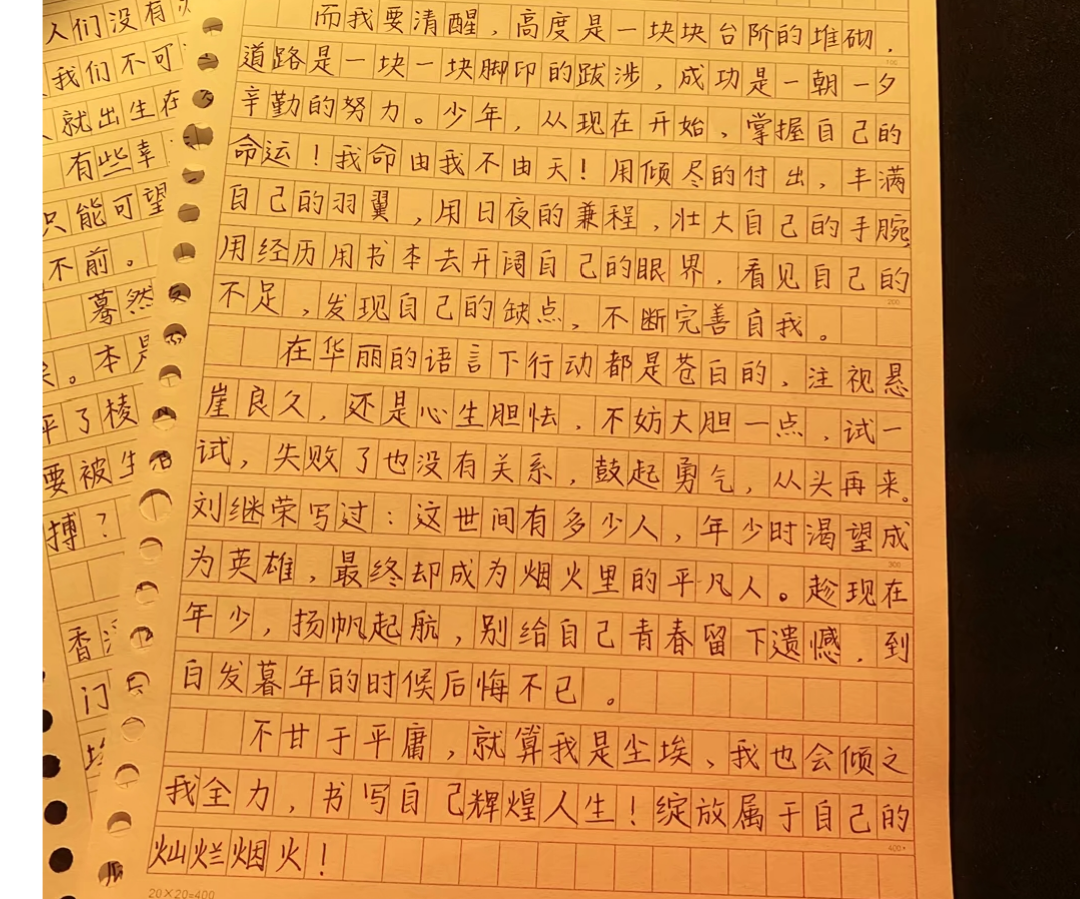 人们没有
我们不可
就出生在
有些幸
只能可望
不前。
蓦然
。本是
平了棱
要被生活
搏？
香
门
而我要清醒，高度是一块块台阶的堆砌，
100
道路是一块一块脚印的跋涉，成功是一朝一夕
辛勤的努力。少年，从现在开始，掌握自己的
命运！我命由我不由天！用倾尽的付出，丰满
自己的羽翼，用日夜的兼程，壮大自己的手腕
用经历用书本去开阔自己的眼界，看见自己的
200
不足，发现自己的缺点，不断完善自我。
在华丽的语言下行动都是苍白的，注视悬
崖良久，还是心生胆怯，不妨大胆一点，试一
试，失败了也没有关系，鼓起勇气，从头再来。
刘继荣写过：这世间有多少人，年少时渴望成
300
为英雄，最终却成为烟火里的平凡人。趁现在
年少，扬帆起航，别给自己青春留下遗憾，到
白发暮年的时候后悔不已。
不甘于平庸，就算我是尘埃、我也会倾之
我全力，书写自己辉煌人生！绽放属于自己的
400
灿烂烟火！
20×20=400